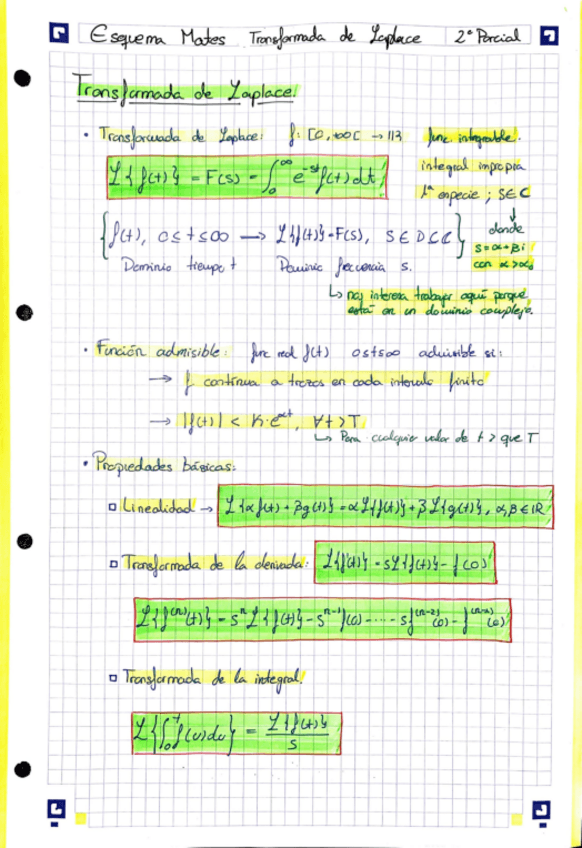 Esquema Mates Transformada de Laplace 2º Parcial
Transformada de Laplace:
• Transformada de Laplace: f: [0, +∞[ → ℝ func. integrable.
ℒ{f(t)} = F(s) = ∫₀^∞ e^-st f(t) dt
integral impropia
1ª especie ; S∈ℂ
↓
donde
s = α + βi
con α > α₀
{f(t), 0 ≤ t ≤ ∞ → ℒ{f(t)} = F(s), S ∈ D ⊆ ℂ}
Dominio tiempo t Dominio frecuencia s.
↳ nos interesa trabajar aquí porque
está en un dominio complejo.
• Función admisible: func real f(t) 0≤t≤∞ admisible si:
→ f continua a trozos en cada intervalo finito
→ |f(t)| < K·e^αt, ∀t > T
↳ Para cualquier valor de t > que T
• Propiedades básicas:
▫ Linealidad → ℒ{αf(t) + βg(t)} = αℒ{f(t)} + βℒ{g(t)}, α,β ∈ ℝ
▫ Transformada de la derivada: ℒ{f'(t)} = sℒ{f(t)} - f(0)
ℒ{f^(n)(t)} = s^n ℒ{f(t)} - s^n-1 f(0) - ···· - s f^(n-2)(0) - f^(n-1)(0)
▫ Transformada de la integral:
ℒ{∫₀^t f(u)du} = ℒ{f(t)} / s